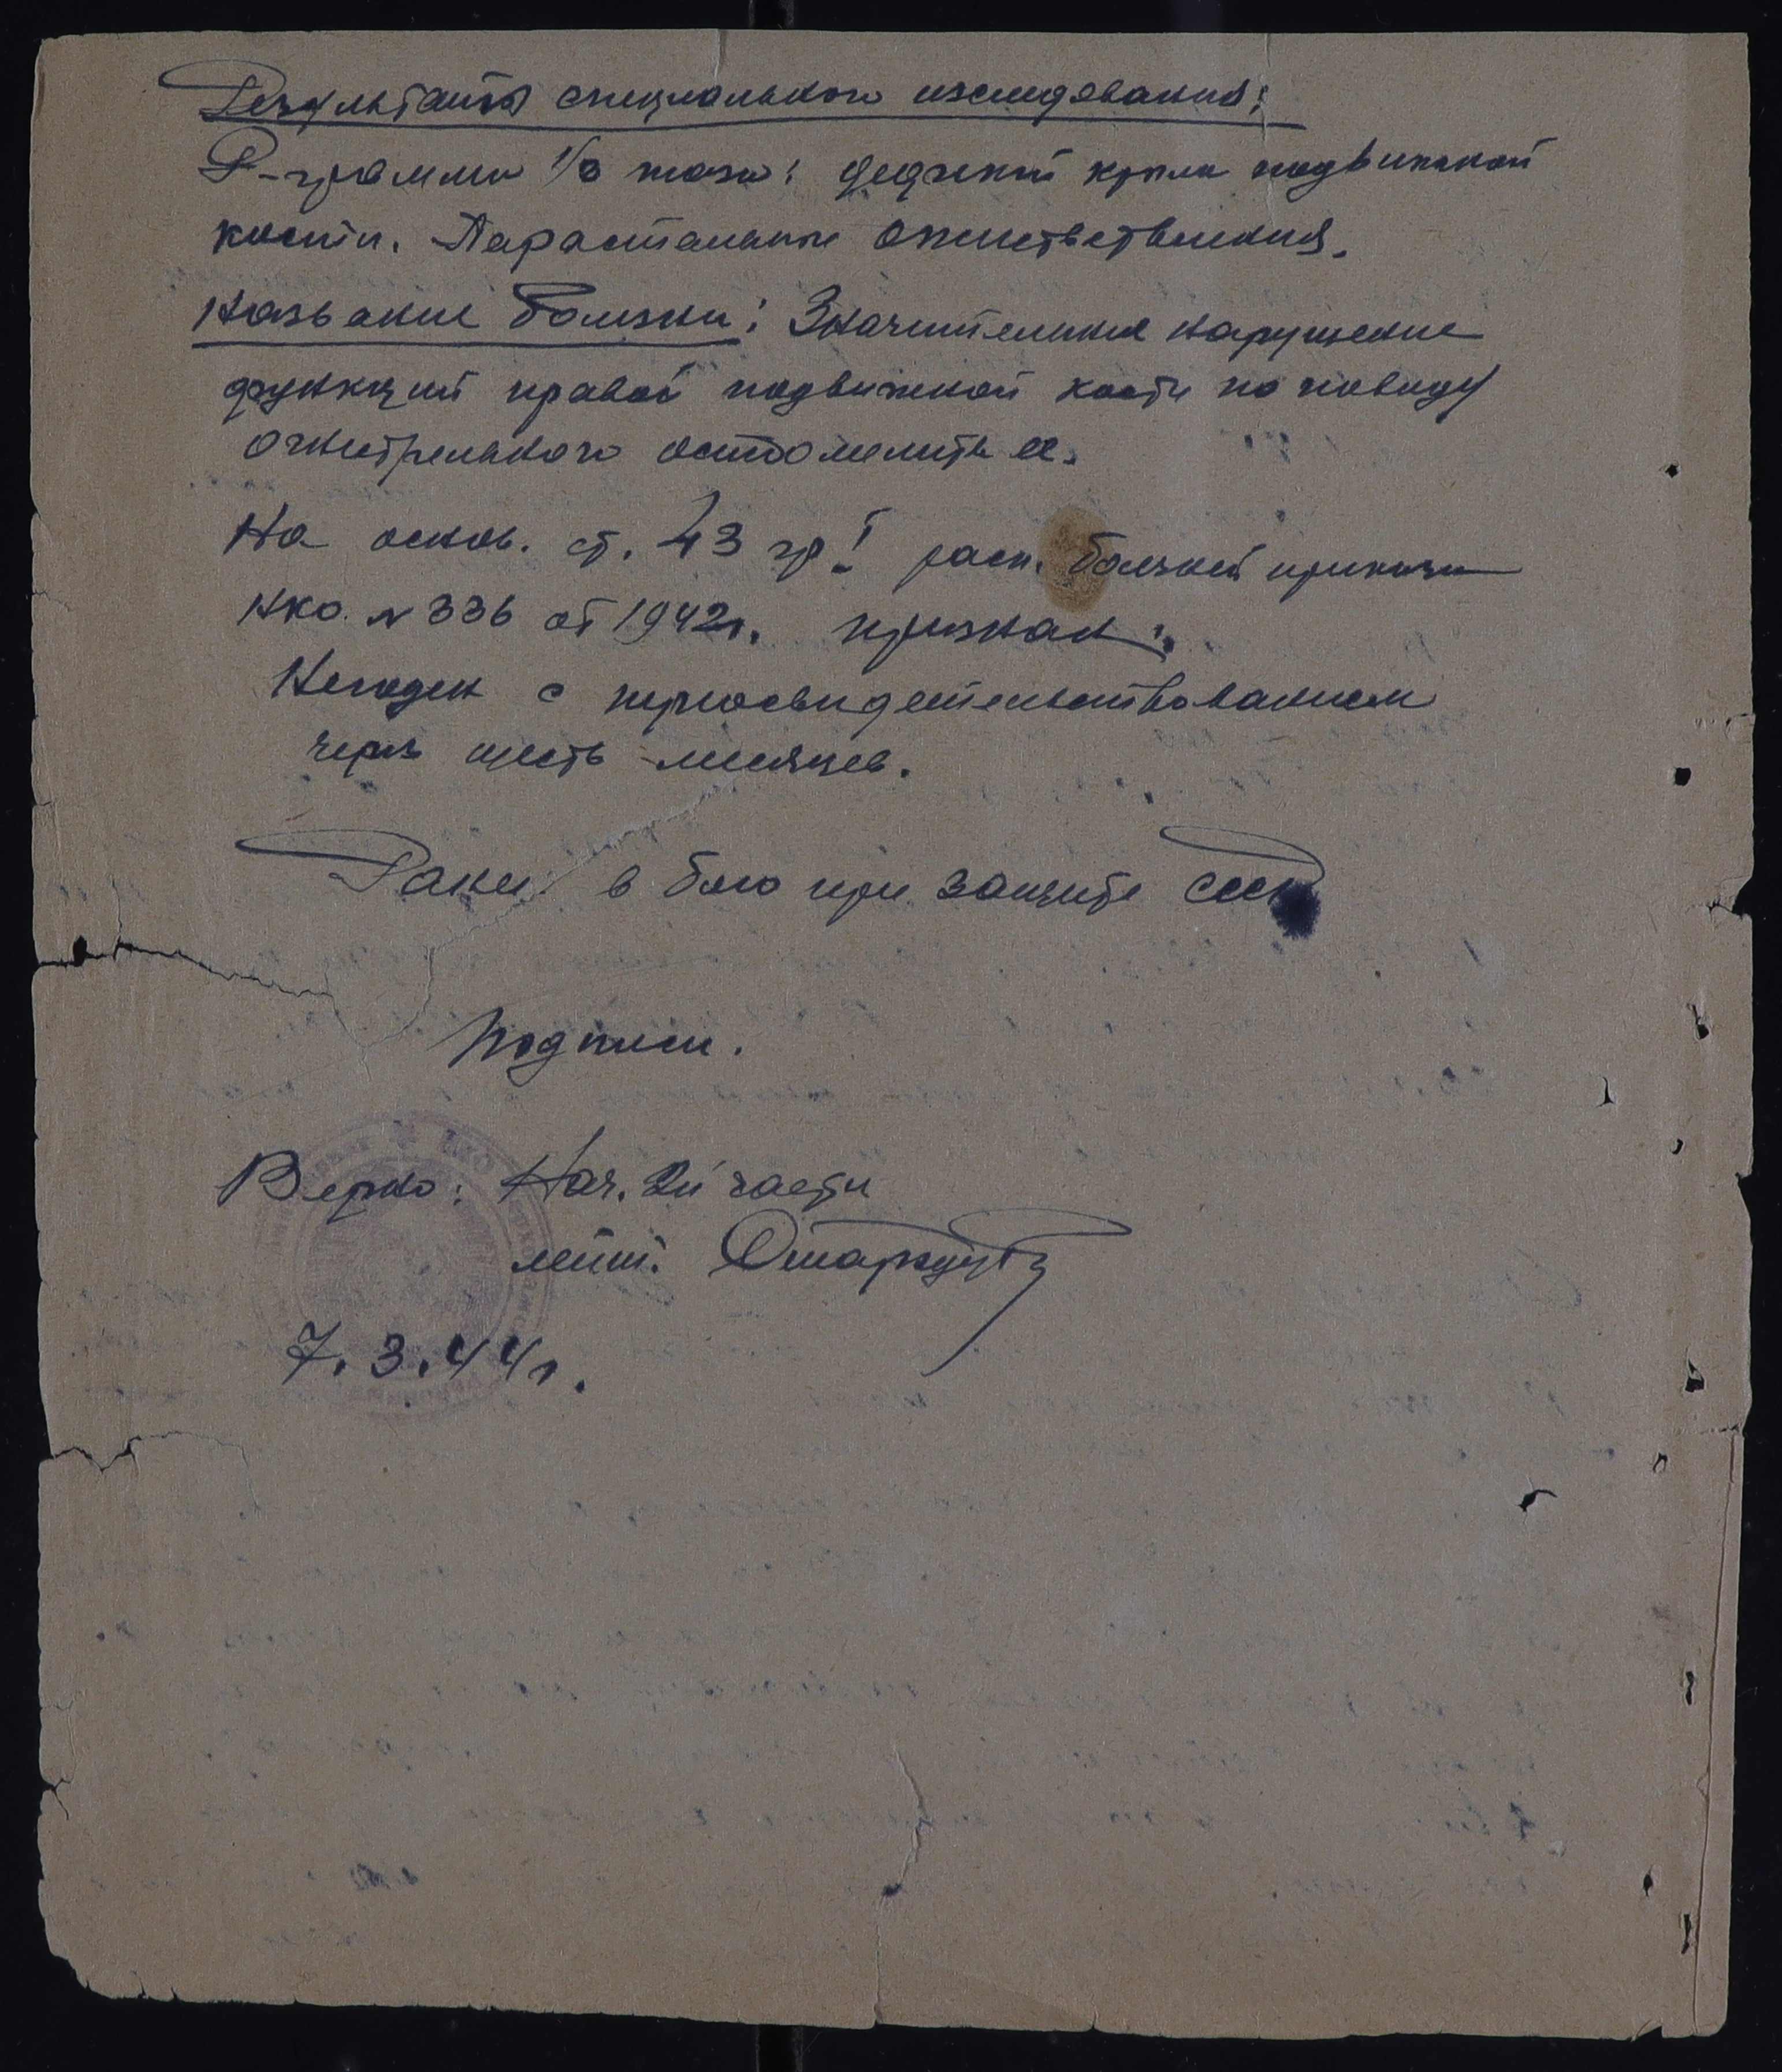 Результаты специального изследования:
Р-грамма 1/3 таза: дефекты крыла подвижной
кости. Паростальные окостветвления.
Название болезни: Значительное нарушение
функций правой подвижной кости по поводу
огнестрельного остеомелита ее.
На основ. ст. 43 гр I расп. болезней приказа
НКО. № 336 от 1942г. признан:
Негоден с переосвидетельствованием
через шесть месяцев.
Ранен в бою при защите СССР
Подписи.
Верно: Нач. 2й части
лейт.
7.3.44г.